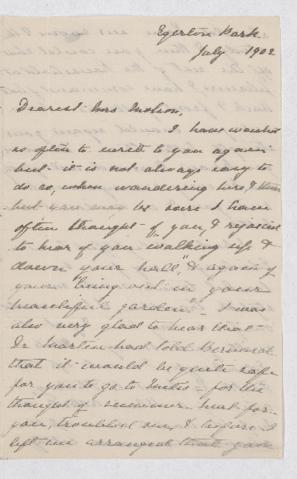 Egerton Park
July 1902
Dearest Mrs
I have wanted
so often to write to you again
but it is not always easy to
do so, when wandering here & there
but you may be sure I have
often thought of you, & rejoiced
to hear of you "walking up &
down your hall", & again of
your being out in your
beautiful garden". I was
also very glad to hear that
Dr had told
that it would be quite safe
for you to go to for the
thought of summer heat for
you, troubled me, & before I
left we arranged that you